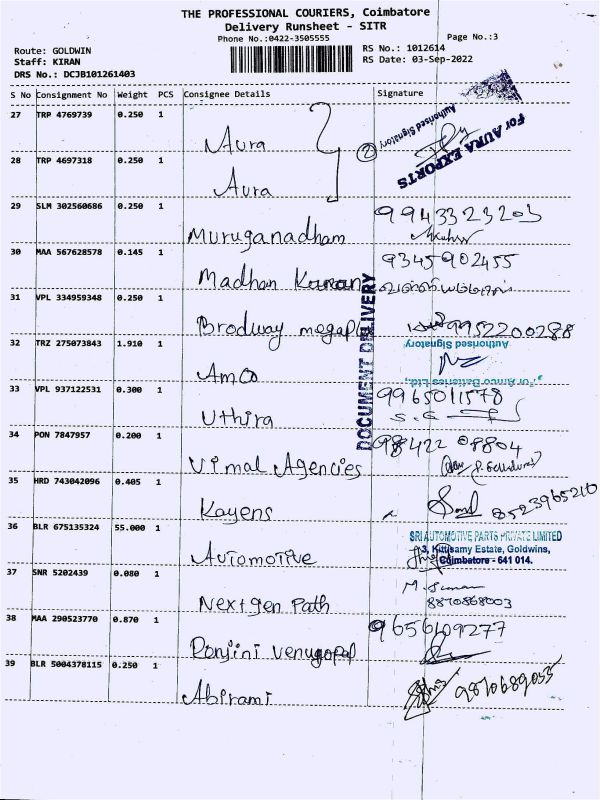 THE PROFESSIONAL COURIERS, Coimbatore
Delivery Runsheet - SITR
Phone No.:0422-3505555
Page No.:3
Route: GOLDWIN
RS No.: 1012614
Staff: KIRAN
RS Date: 03-Sep-2022
DRS No.: DCJB101261403
S No Consignment No Weight PCS Consignee Details Signature
27 TRP 4769739 0.250 1
Aura
Authorised Signatory
For AURA EXPORTS
2
28 TRP 4697318 0.250 1
Aura
29 SLM 302560686 0.250 1
Muruganadham
9943323203
30 MAA 567628578 0.145 1
Madhan Kumaran
9345902455
31 VPL 334959348 0.250 1
Brodway
9952200288
DOCUMENT DELIVERY
32 TRZ 275073843 1.910 1
Amco
Authorised Signatory
For Amco Batteries Ltd.,
33 VPL 937122531 0.300 1
Uthira
9965011578
34 PON 7847957 0.200 1
Vimal Agencies
98422 08804
35 HRD 743042096 0.405 1
Kayens
8523965210
36 BLR 675135324 55.000 1
Automotive
SRI AUTOMOTIVE PARTS PRIVATE LIMITED
3, Kittisamy Estate, Goldwins,
Coimbatore - 641 014.
37 SNR 5202439 0.080 1
Nextgen Path
8870868003
38 MAA 290523770 0.870 1
Ranjini Venugopal
9656109277
39 BLR 5004378115 0.250 1
Abirami
9870689055